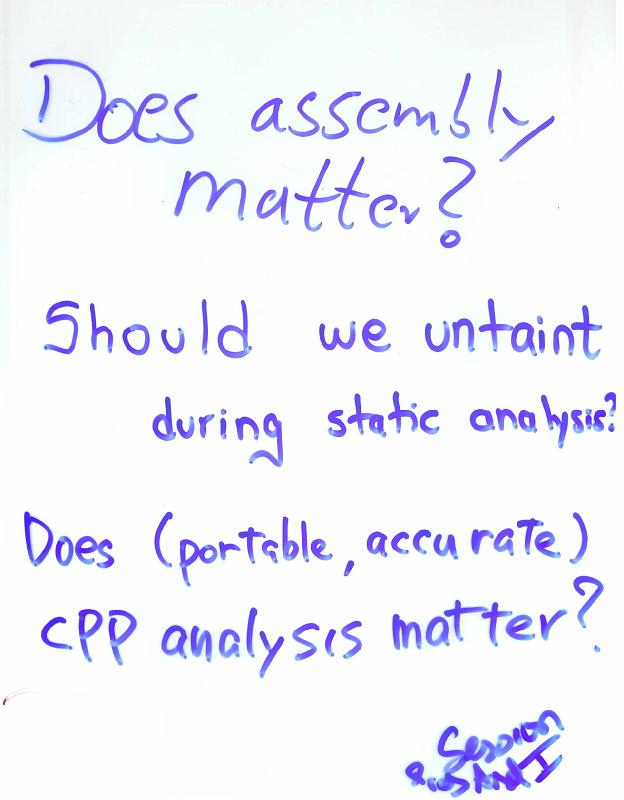 Does assembly
matter?
Should we untaint
during static analysis?
Does (portable, accurate)
CPP analysis matter?
Session
I